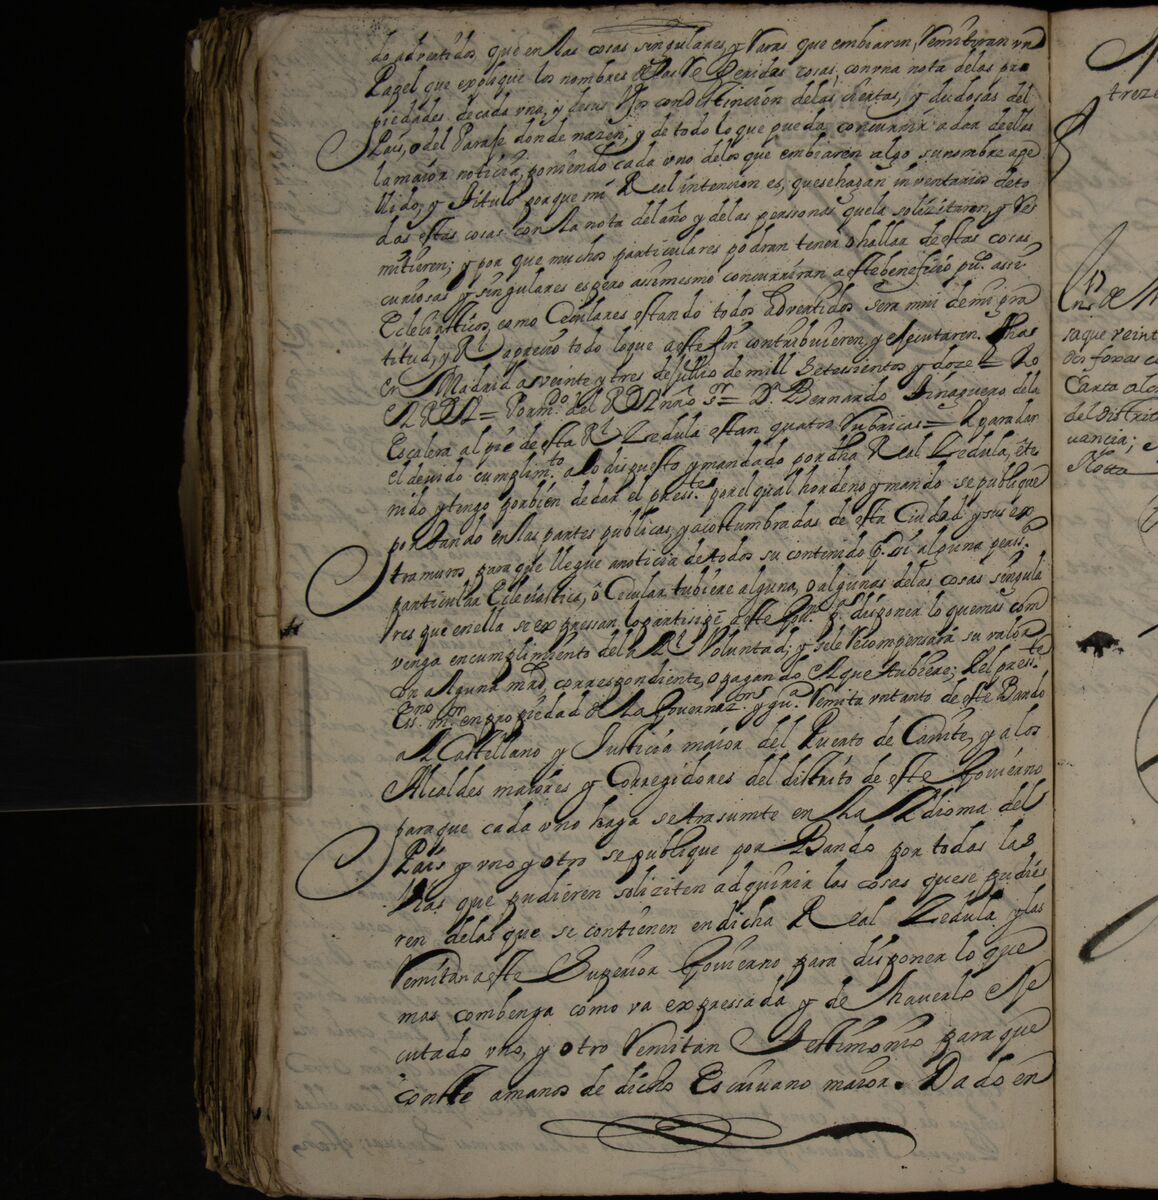 do advertidos que en las cosas singulares, y raras que embiaren, remitiran un
Papel que explique los nombres de las referidas cosas, con una nota de las pro
piedades de cada una, y de sus con distincion de las ciertas, y dudosas del
Pais, o del Paraje donde nazen, y de todo lo que pueda concurrir a dar de ellas
la maior noticia, poniendo cada uno de los que embiaren algo su nombre ape
llido, y titulo porque mi Real intencion es, que se hagan inventarios de to
das estas cosas con la nota del año y de las perssonas que la solizitaren, y re
mitieren; y por que muchos particulares podran tener o hallar de estas cosas
curiosas y singulares espero assimesmo concurriran a este beneficio pu.co assi
Eclesiasticos, como Ceculares estando todos advertidos sera mui de mi gra
titud, y Rl aprecio todo lo que a este fin contribuieren, y executaren. fha
en Madrid a veinte y tres de Jullio de mill Setesientos y doze = Yo
el Rey = Por m.do del Rey nro sr = Dn Bernardo Tinaguero de la
Escalera al pie de esta Rl Zedula estan quatro rubricas = Y para dar
el devido cumplim.to a lo dispuesto y mandado por dha Real Zedula, he te
nido y tengo por bien de dar el press.te por el qual hordeno y mando se publique
por Bando en las partes publicas, y acostumbradas de esta Ciudad y sus ex
tramuros para que llegue a noticia de todos su contenido, si alguna perss.a
particular Eclesiastica, ô Cecular tubiere alguna, o algunas de las cosas singula
res que en ella se expressan lo partisipe a este Gou.no p.a disponer lo que mas com
venga en cumplimiento de la Rl Voluntad; y se le recompensara su valor
con alguna mrd correspondiente, o pagando el que tubiere; Y el press.te
Ess.no m.or en propiedad de la Governaz.on y gu.a remita un tanto de este Bando
al Castellano y Justicia maior del Puerto de Cavite, y a los
Alcaldes maiores y Corregidores del distrito de este Govierno
para que cada uno haga se trasumte en la Ydioma del
Pais y uno y otro se publique por Bando por todas las
vias que pudieren soliziten adquirir las cosas que se pudie
ren de las que se contienen en dicha Real Zedula y las
remitan a este Superior Govierno para disponer lo que
mas combenga como va expressado y de haverlo Exe
cutado uno, y otro remitan Testimonio para que
conste a manos de dicho Escrivano maior. Dado en
treze
saque veint
Carta alca
del distrit
vancia;
Nota